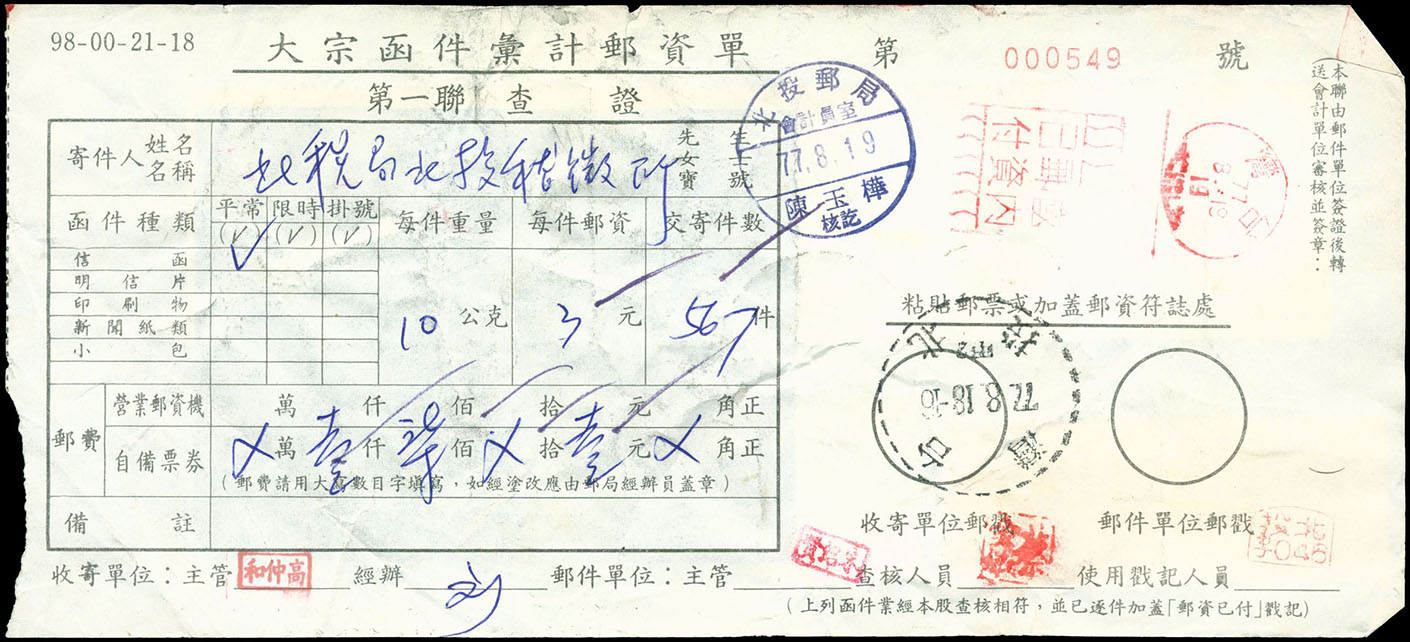 98-00-21-18
大宗函件彙計郵資單
第 000549 號
第一聯 查 證
本聯由郵件單位簽證後轉
送會計單位審核並簽章:
寄件人 姓名 名稱
北稅局北投稽徵所
先生 女士 寶號
北投郵局
會計員室
77.8.19
陳玉樺
核訖
國內
郵資
已付
77.8.18
19
函件種類 平常 限時 掛號 每件重量 每件郵資 交寄件數
(√) (√) (√)
√
信函
明信片
印刷物
新聞紙類
小包
10 公克 3 元 567 件
粘貼郵票或加蓋郵資符誌處
77.8.18-16
郵費
營業郵資機 萬 仟 佰 拾 元 角正
自備票券 ㄨ萬 壹仟 柒佰 ㄨ拾 壹元 ㄨ角正
(郵費請用大寫數目字填寫,如經塗改應由郵局經辦員蓋章)
備註
收寄單位郵戳 郵件單位郵戳
收寄單位:主管 高仲和 經辦 郵件單位:主管 查核人員 使用戳記人員
(上列函件業經本股查核相符,並已逐件加蓋「郵資已付」戳記)